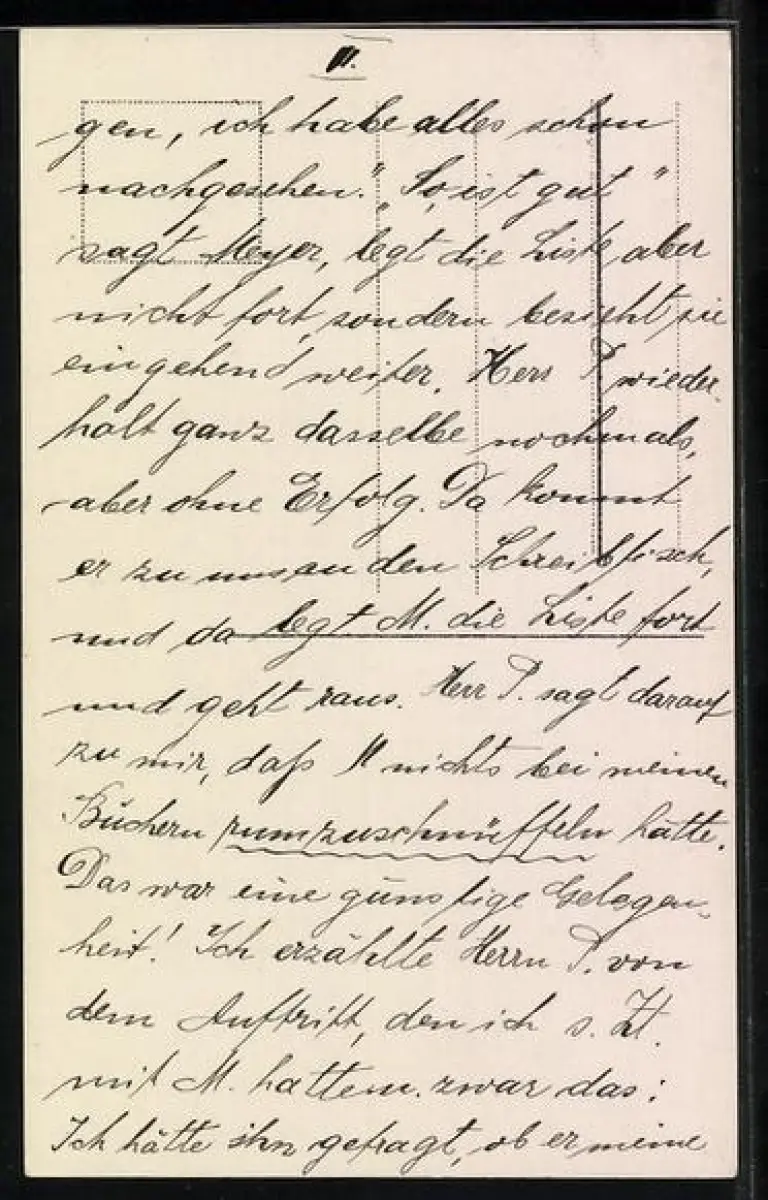 II.
gen, ich habe alles schon
nachgesehen." „So, ist gut"
sagt Meyer, legt die Liste, aber
nicht fort, sondern besieht sie
eingehend weiter. Herr P. wieder-
holt ganz dasselbe nochmals,
aber ohne Erfolg. Da kommt
er zu uns an den Schreibtisch,
und da legt M. die Liste fort
und geht raus. Herr P. sagt darauf
zu mir, daß M nichts bei meinen
Büchern rumzuschnüffeln hätte.
Das war eine günstige Gelegen-
heit! Ich erzählte Herrn P. von
dem Auftritt, den ich s. Zt.
mit M. hatte u. zwar das:
Ich hätte ihn gefragt, ob er meine